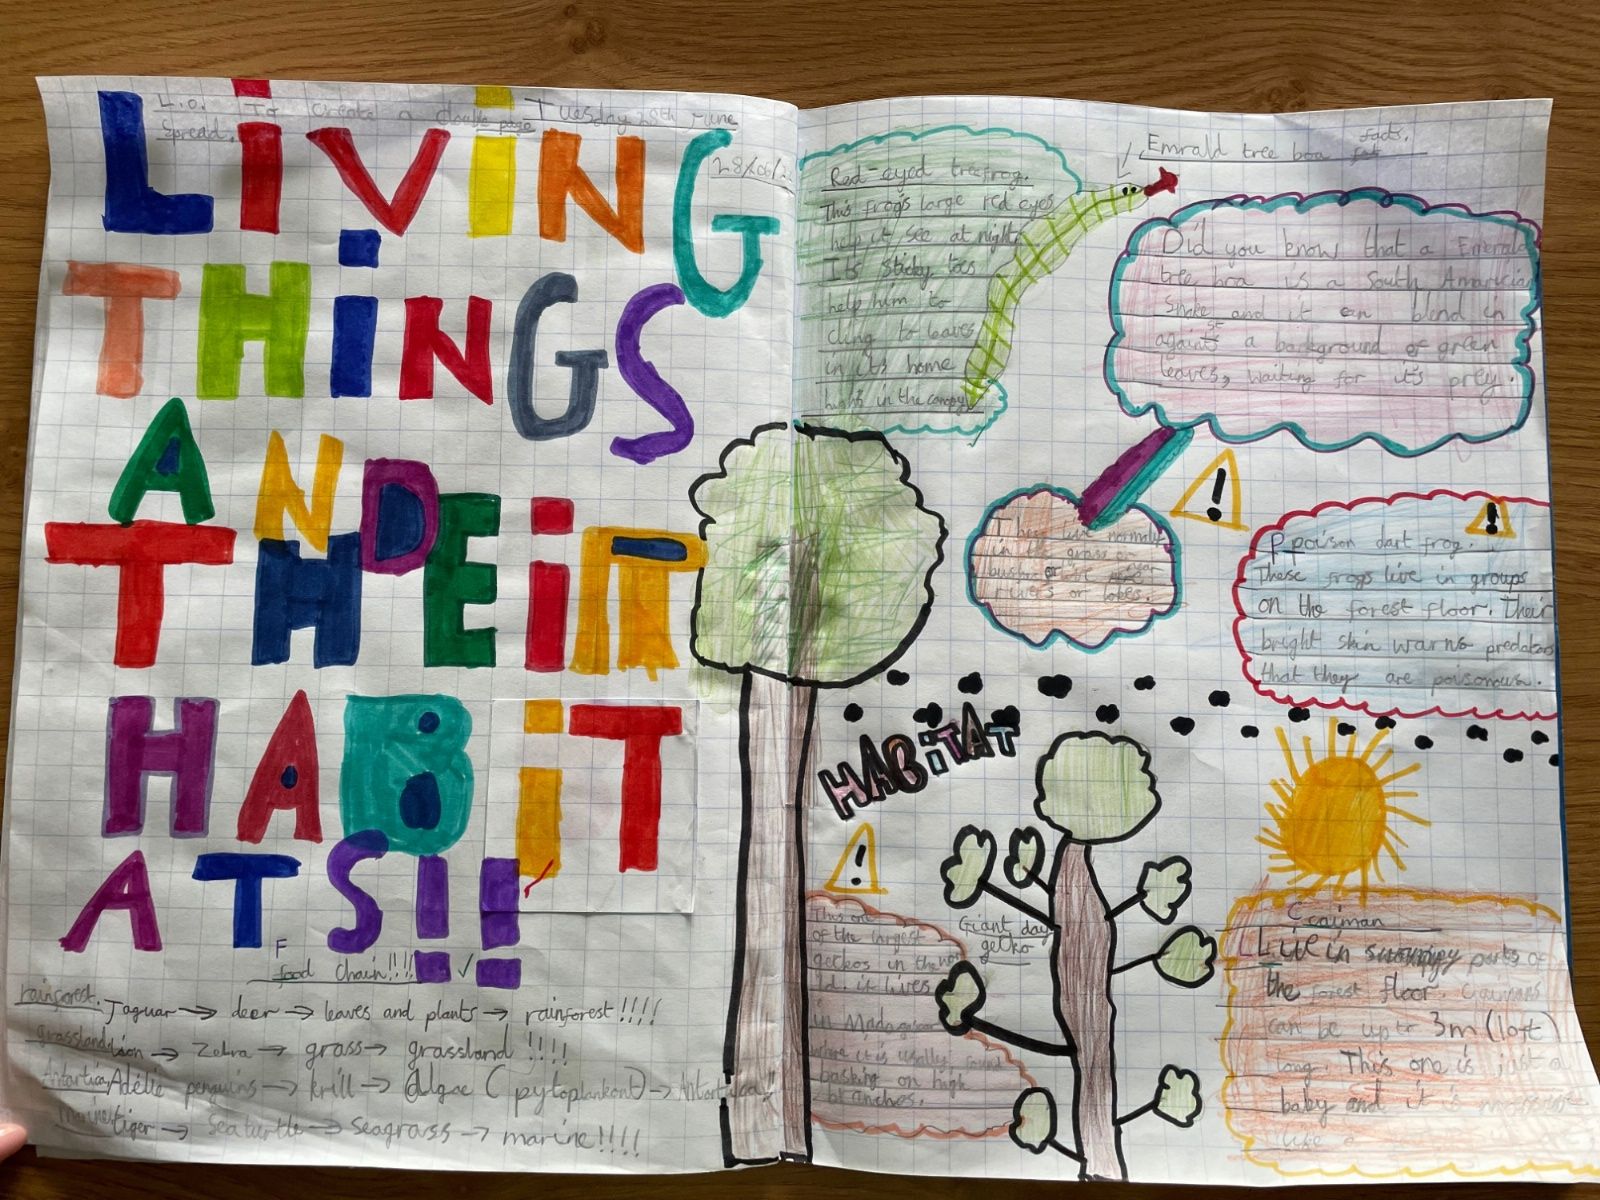 L.o. To create a double page Tuesday 28th June
Spread.
28/06/2
LiViNG
THiNGS
AND
THEiR
HABiT
ATS!!
F
food chain!!!!
rainforest. Jaguar → deer → leaves and plants → rainforest!!!!
grassland lion → Zebra → grass → grassland!!!!
Antartica Adélie penguins → krill → algae (pytoplankont) → Antartica!!
Marine tiger → Sea turtle → Seagrass → marine!!!!
Red-eyed treefrog.
This frogs large red eyes
help it see at night.
Its sticky toes
help him to
cling to leaves
in its home
hights in the canopy
Emrald tree boa facts.
Did you know that a Emerald
tree boa is a South Amarican
Snake and it can blend in
against a background of green
leaves, waiting for it's prey.
These live normaly
in the grass or
bushes or live near
rivers or lakes.
P poison dart frog.
These frogs live in groups
on the forest floor. Their
bright skin warns predators
that they are poisonous.
HABiTAT
Giant day
gecko
This one
of the largest
geckos in the wor
ld. it lives
in Madagascar
where it is usally found
basking on high
branches.
C caiman
Live in swampy parts of
the forest floor. Ciamans
can be up to 3m (10ft)
long. This one is just a
baby and it is